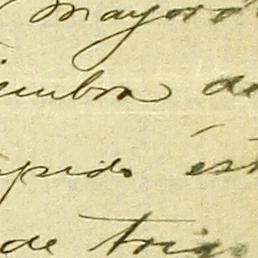 Mayord
iembra de
ápido ést
de trigo